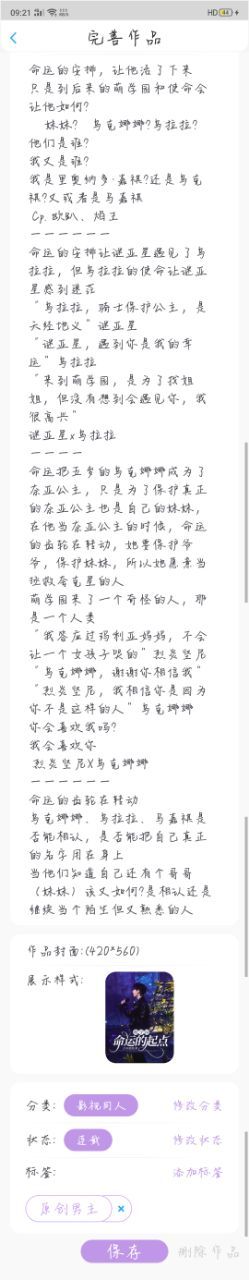 09:21
HD 44
完善作品
命运的安排，让他活了下来
只是到后来的萌学园和使命会
让他如何?
妹妹? 乌克娜娜?乌拉拉?
他们是谁?
我又是谁?
我是里奥纳多·嘉祺?还是乌克
祺?又或者是马嘉祺
Cp. 欧趴、焰王
——————
命运的安排让谜亚星遇见了乌
拉拉，但乌拉拉的使命让谜亚
星感到迷茫
“乌拉拉，骑士保护公主，是
天经地义”谜亚星
“谜亚星，遇到你是我的幸
运”乌拉拉
“来到萌学园，是为了找姐
姐，但没有想到会遇见你，我
很高兴”
谜亚星x乌拉拉
————
命运把五岁的乌克娜娜成为了
奈亚公主，只是为了保护真正
的奈亚公主也是自己的妹妹，
在他当奈亚公主的时候，命运
的齿轮在转动，她要保护爷
爷，保护妹妹，所以她愿意当
拯救夸克星的人
萌学园来了一个奇怪的人，那
是一个人类
“我答应过玛利亚妈妈，不会
让一个女孩子哭的”烈炎坚尼
“乌克娜娜，谢谢你相信我”
“烈炎坚尼，我相信你是因为
你不是这样的人”乌克娜娜
你会喜欢我吗?
我会喜欢你
烈炎坚尼X乌克娜娜
——————
命运的齿轮在转动
乌克娜娜、乌拉拉、马嘉祺是
否能相认，是否能把自己真正
的名字用在身上
当他们知道自己还有个哥哥
（妹妹）该又如何?是相认还是
继续当个陌生但又熟悉的人
作品封面:(420*560)
展示样式:
命运的起点
分类:
影视同人
修改分类
状态:
连载
修改状态
标签:
添加标签
原创男主 ×
保存
删除作品